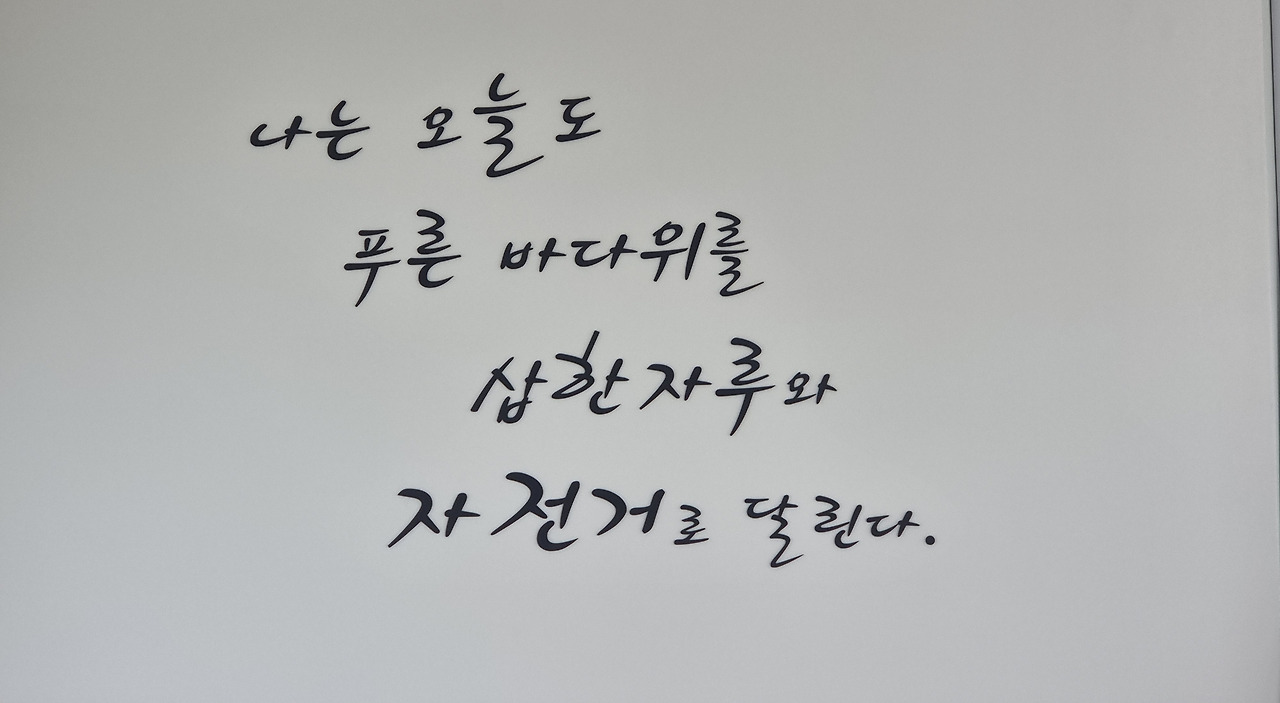 나는 오늘도
푸른 바다위를
삽한자루와
자전거로 달린다.